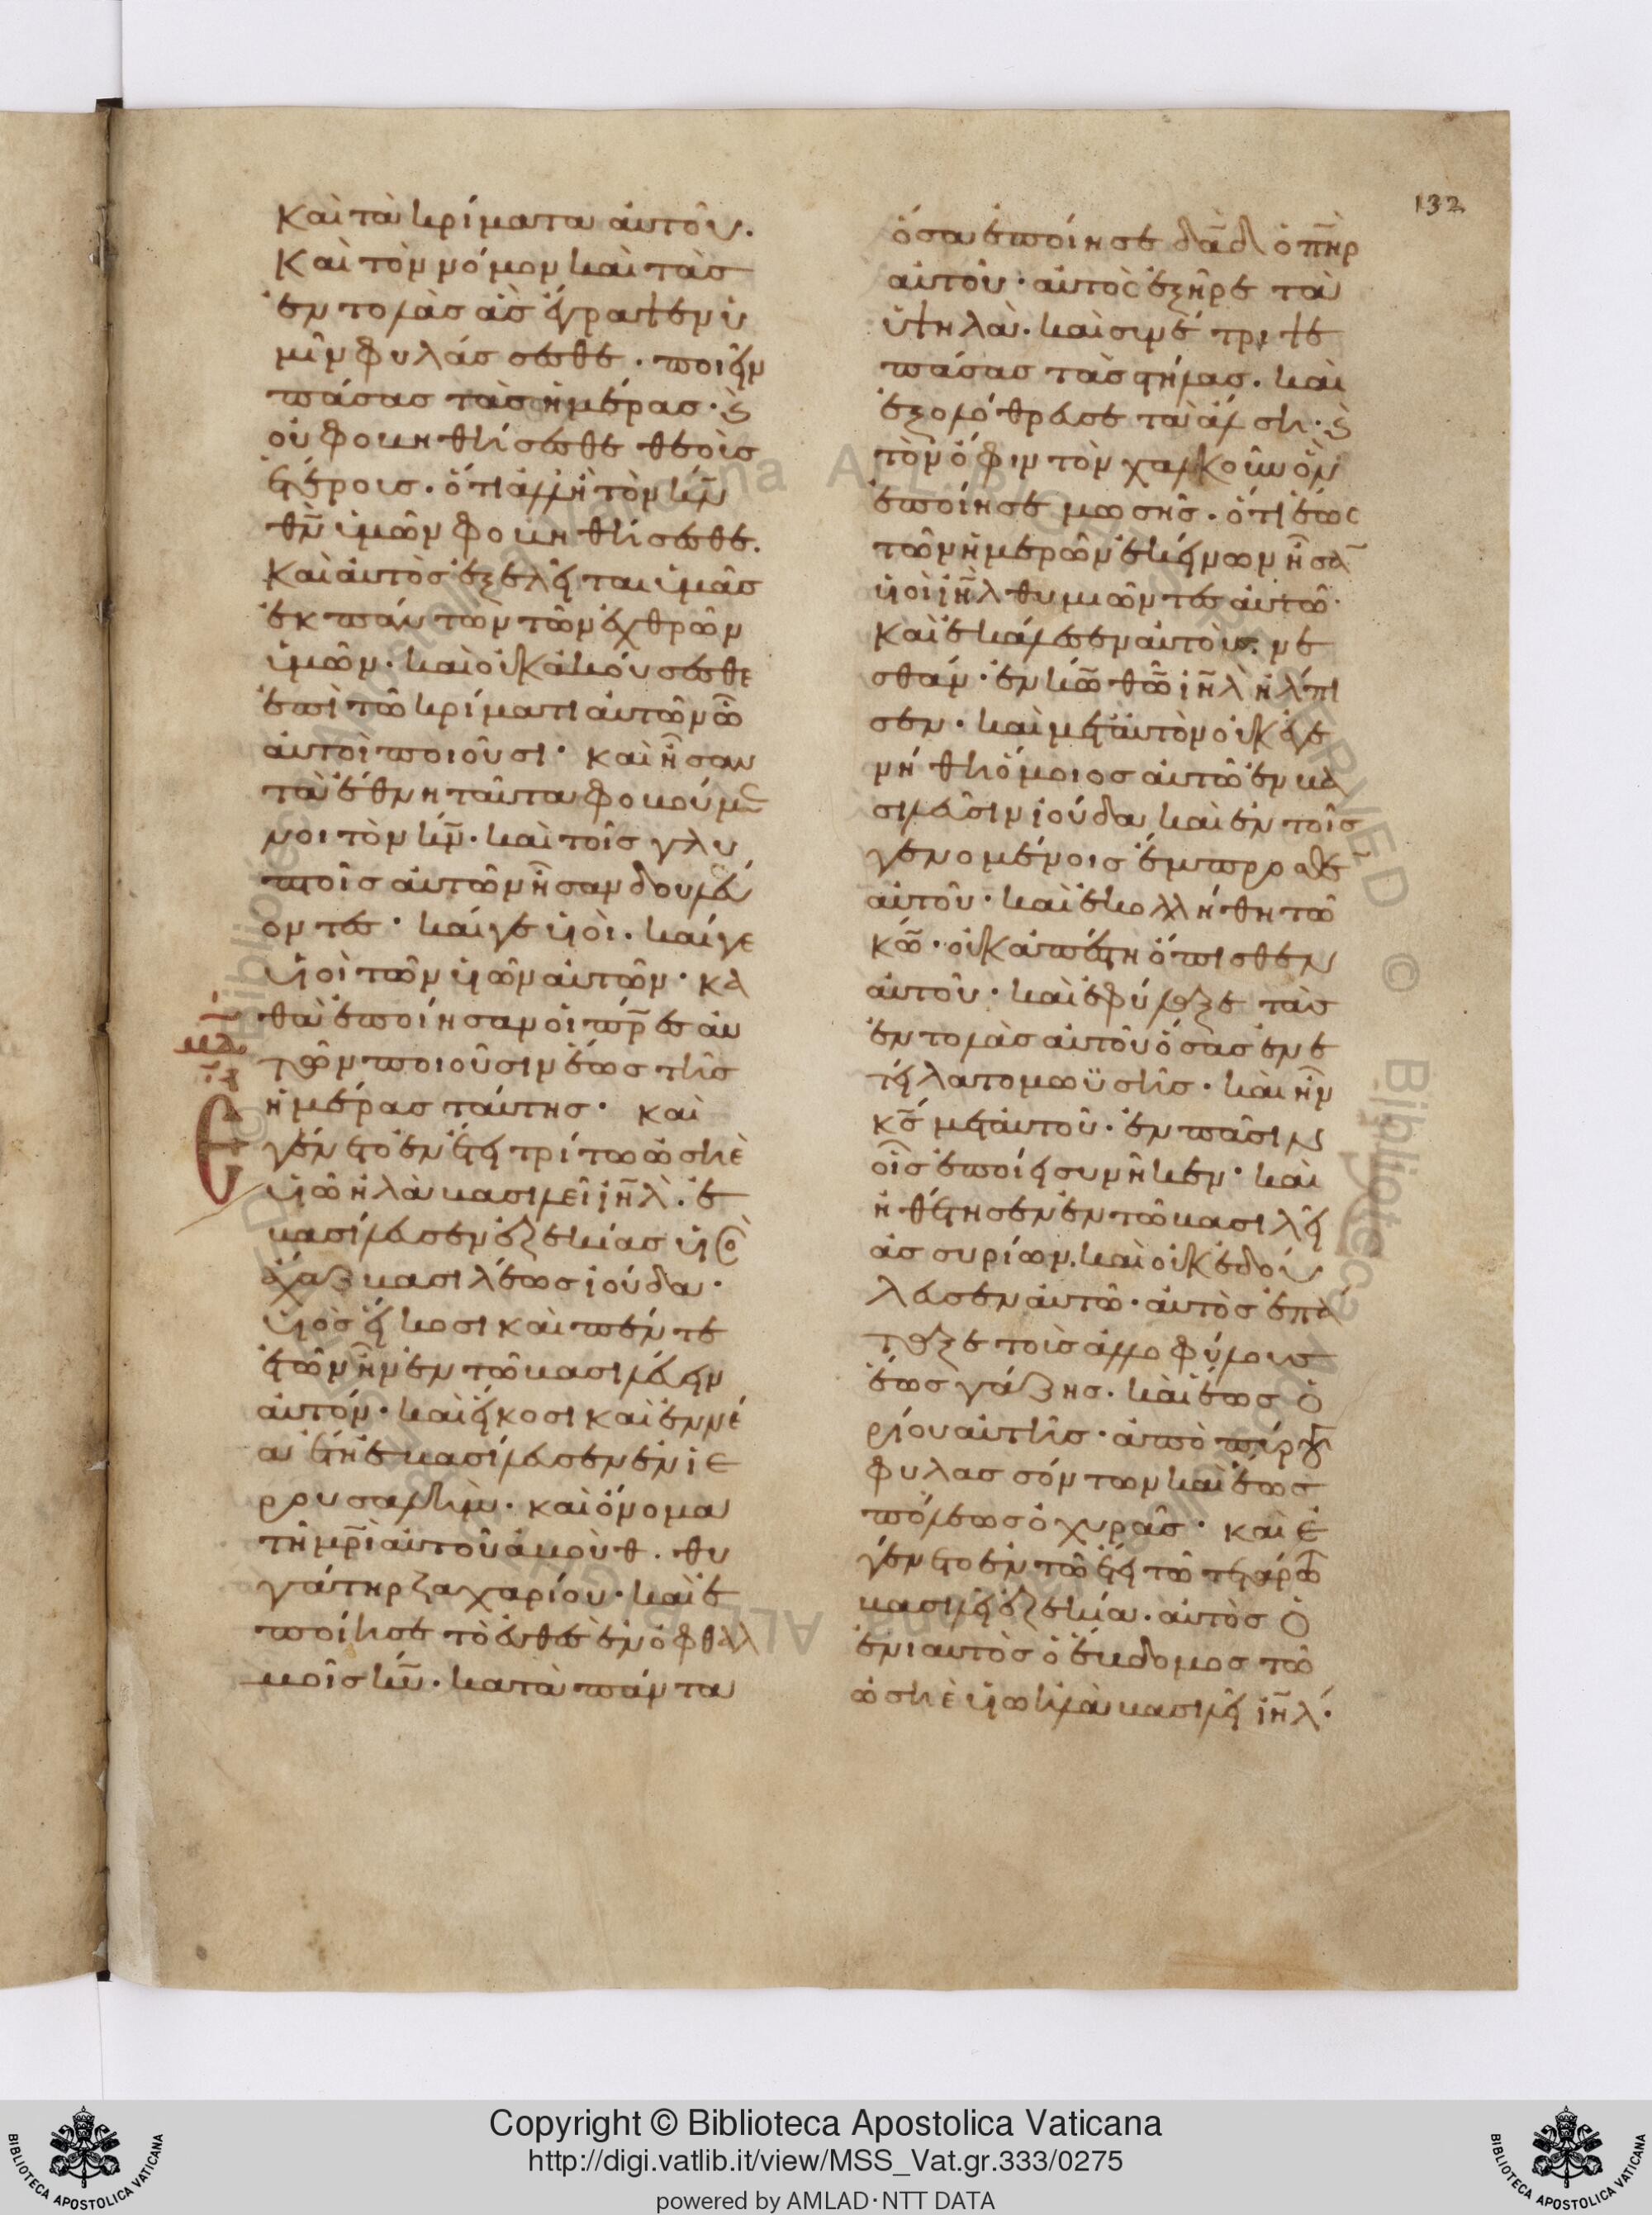 132
καὶ τὰ κρίματα αὐτοῦ.
Καὶ τὸν νόμον καὶ τὰσ
ἐντολὰσ ἃσ ἔγραψεν ὑ
μῖν φυλάσσεσθε. ποιεῖν
πάσασ τὰσ ἡμέρασ· ϗ
οὐ φοβηθήσεσθε θεοῖσ
ἑτέροισ. ὅτι ἀλλ' ἢ τὸν κν̄
θν̄ ὑμῶν φοβηθήσεσθε.
Καὶ αὐτὸσ ἐξελεῖται ὑμᾶσ
ἐκ πάντων τῶν ἐχθρῶν
ὑμῶν. καὶ οὐκ ἀκούσεσθε
ἐπὶ τῶ κρίματι αὐτῶν ὧ
αὐτοὶ ποιοῦσι· καὶ ἦσαν
τὰ ἔθνη ταῦτα φοβούμε
νοι τὸν κν̄. καὶ τοῖσ γλυ
πτοῖσ αὐτῶν ἦσαν δουλεύ
οντεσ· καί γε υἱοὶ. καί γε
υἱοὶ τῶν υἱῶν αὐτῶν· κα
θὰ ἐποίησαν οἱ πρ̄εσ αὐ
τῶν ποιοῦσιν ἕωσ τῆσ
ἡμέρασ ταύτησ· καὶ
Εγένετο ἐν ἔτει τρίτω ὡσηὲ
υἱῶ ἠλὰ βασιλεῖ ιη̄λ. ἐ
βασίλευσεν ἐζεκίασ υἱὸσ
ἄχαζ βασιλέωσ ἰούδα·
υἱὸσ εἴκοσι καὶ πέντε
ἐτῶν ἦν ἐν τῶ βασιλεύειν
αὐτόν. καὶ εἴκοσι καὶ ἐννέ
α ἔτη ἐβασίλευσεν ἐν ἱε
ρουσαλήμ. καὶ ὄνομα
τῆ μρ̄ὶ αὐτοῦ ἀμοὺθ. θυ
γάτηρ ζαχαρίου· καὶ ἐ
ποίησε τὸ εὐθὲσ ἐν ὀφθαλ
μοῖσ κῡ. κατὰ πάντα
ὅσα ἐποίησε δᾱδ ὁ πη̄ρ
αὐτοῦ· αὐτὸσ ἐξῆρε τὰ
ὑψηλὰ. καὶ συνέτριψε
πάσασ τὰσ στήλασ. καὶ
ἐξολόθρευσε τὰ ἄλση· ϗ
τὸν ὄφιν τὸν χαλκοῦν ὃν
ἐποίησε μωσῆσ. ὅτι ἕωσ
τῶν ἡμερῶν ἐκείνων ἦσᾱ
υἱοὶ ιη̄λ θυμιῶντεσ αὐτῶ·
Καὶ ἐκάλεσεν αὐτὸν. νε
σθάν· ἐν κω̄ θω̄ ιη̄λ ἤλπι
σεν. καὶ μετ' αὐτὸν οὐκ ἐγε
νήθη ὅμοιοσ αὐτῶ ἐν βα
σιλεῦσιν ἰούδα καὶ ἐν τοῖσ
γενομένοισ ἔμπροσθε
αὐτοῦ· καὶ ἐκολλήθη τῶ
κω̄. οὐκ ἀπέστη ὄπισθεν
αὐτοῦ· καὶ ἐφύλαξε τὰσ
ἐντολὰσ αὐτοῦ ὅσασ ἐνε
τείλατο μωϋσῆσ· καὶ ἦν
κσ̄ μετ' αὐτοῦ. ἐν πᾶσιν
οἷσ ἐποίει συνῆκεν· καὶ
ἠθέτησεν ἐν τῶ βασιλεῖ
ἀσσυρίων. καὶ οὐκ ἐδού
λευσεν αὐτῶ. αὐτὸσ ἐπά
ταξε τοὺσ ἀλλοφύλουσ
ἕωσ γάζησ. καὶ ἕωσ ὁ
ρίου αὐτῆσ. ἀπὸ πύργου
φυλασσόντων καὶ ἕωσ
πόλεωσ ὀχυρᾶσ· καὶ ἐ
γένετο ἐν τῶ ἔτει τῶ τετάρτω
βασιλεῖ ἐζεκία. αὐτὸσ ὁ
ἐνιαυτὸσ ὁ ἕβδομοσ τῶ
ὡσηὲ υἱῶ ἠλὰ βασιλεῖ ιη̄λ.
Copyright © Biblioteca Apostolica Vaticana
http://digi.vatlib.it/view/MSS_Vat.gr.333/0275
powered by AMLAD·NTT DATA
BIBLIOTECA APOSTOLICA VATICANA
BIBLIOTECA APOSTOLICA VATICANA